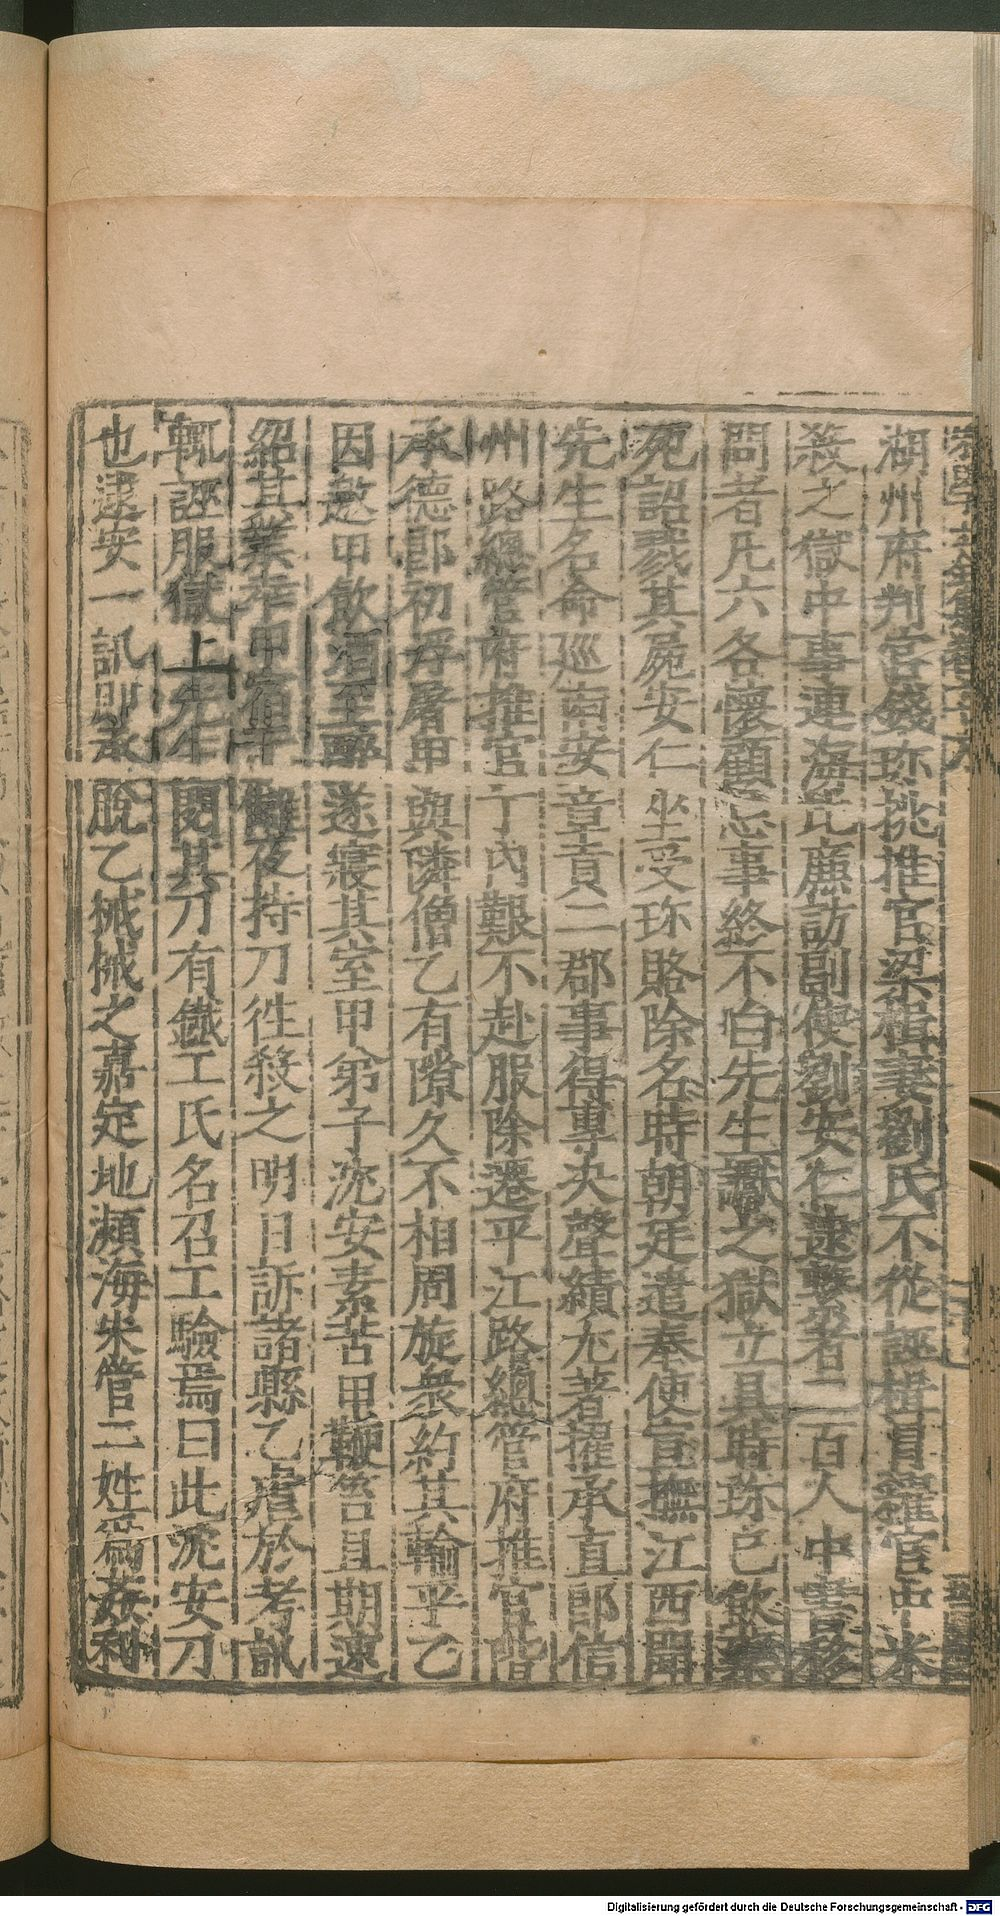 湖州府判官錢珍挑推官梁楫妻劉氏不從誣楫買糴官中米
殺之獄中事連海北廉訪副使劉安仁逮繫者二百人中書移
問者凡六各懷顧忌事終不白先生讞之獄立具時珍已飲藥
死詔戮其屍安仁坐受珍賂除名時朝廷遣奉使宣撫江西聞
先生名命巡南安章貢二郡事得專决聲績尤著擢承直郎信
州路總管府推官丁內艱不赴服除遷平江路總管府推官階
承德郎初浮屠甲與隣僧乙有隙久不相周旋衆約其輸平乙
因邀甲飲酒至醉遂寢其室甲弟子沈安素苦甲鞭笞且期速
紹其業幸甲宿于讎夜持刀往殺之明日訴諸縣乙虐於考訊
輒誣服獄上先生閱其刀有鐵工氏名召工驗焉曰此沈安刀
也逮安一訊即承脫乙械械之嘉定地瀕海朱管二姓為姦利
Digitalisierung gefördert durch die Deutsche Forschungsgemeinschaft - DFG